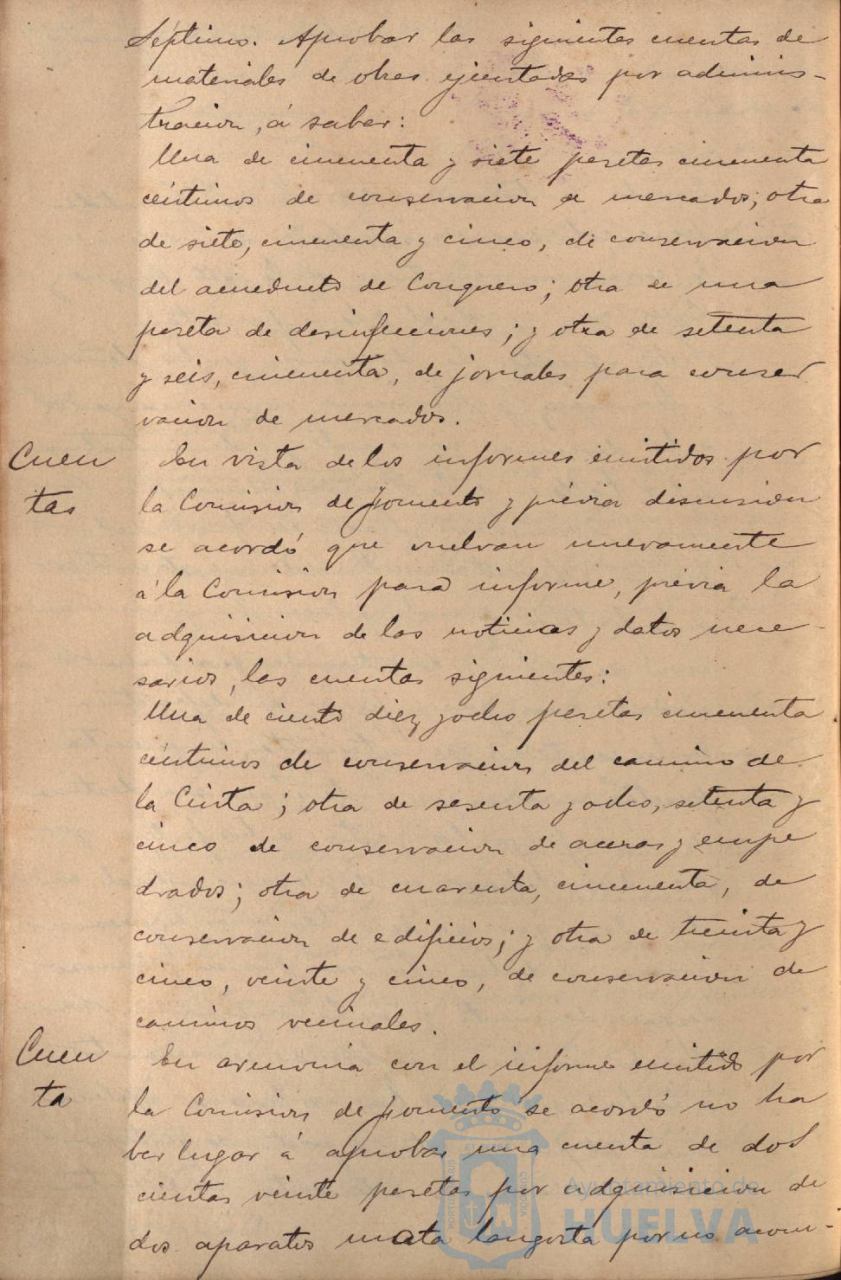 Séptimo. Aprobar las siguientes cuentas de
materiales de obras ejecutadas por adminis-
tracion, á saber:
Una de cincuenta y siete pesetas cincuenta
céntimos de conservacion de mercados; otra
de siete, cincuenta y cinco, de conservacion
del acueducto de Conquero; otra de una
peseta de desinfecciones; y otra de setenta
y seis, cincuenta, de jornales para conser
vacion de mercados.
Cuen
tas
En vista de los informes emitidos por
la Comision de Fomento y prévia discusion
se acordó que vuelvan nuevamente
á la Comision para informe, prévia la
adquisicion de las noticias y datos nece-
sarios, las cuentas siguientes:
Una de ciento diez y ocho pesetas cincuenta
céntimos de conservacion del camino de
la Cinta; otra de sesenta y ocho, setenta y
cinco de conservacion de aceras y empe
drados; otra de cuarenta, cincuenta, de
conservacion de edificios; y otra de treinta y
cinco, veinte y cinco, de conservacion de
caminos vecinales.
Cuen
ta
En armonia con el informe emitido por
la Comision de Fomento se acordó no ha
ber lugar á aprobar una cuenta de dos
cientas veinte pesetas por adquisicion de
dos aparatos mata langosta por no acom-
Ayuntamiento de
HUELVA